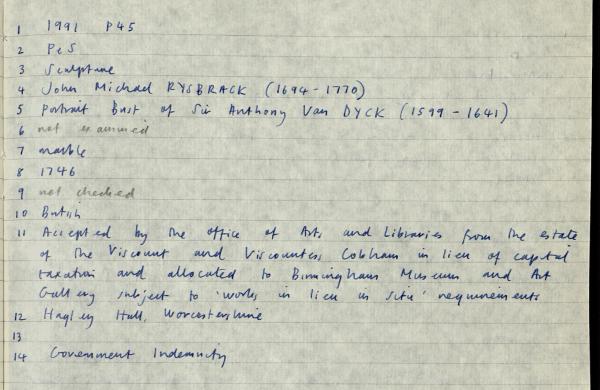 1 1991 P45
2 P & S
3 Sculpture
4 John Michael RYSBRACK (1694-1770)
5 Portrait Bust of Sir Anthony Van DYCK (1599-1641)
6 not examined
7 marble
8 1746
9 not checked
10 British
11 Accepted by the office of Arts and Libraries from the estate
of the Viscount and Viscountess Cobham in lieu of capital
taxation and allocated to Birmingham Museum and Art
Gallery subject to 'works in lieu in situ' requirements
12 Hagley Hall, Worcestershire
13
14 Government Indemnity